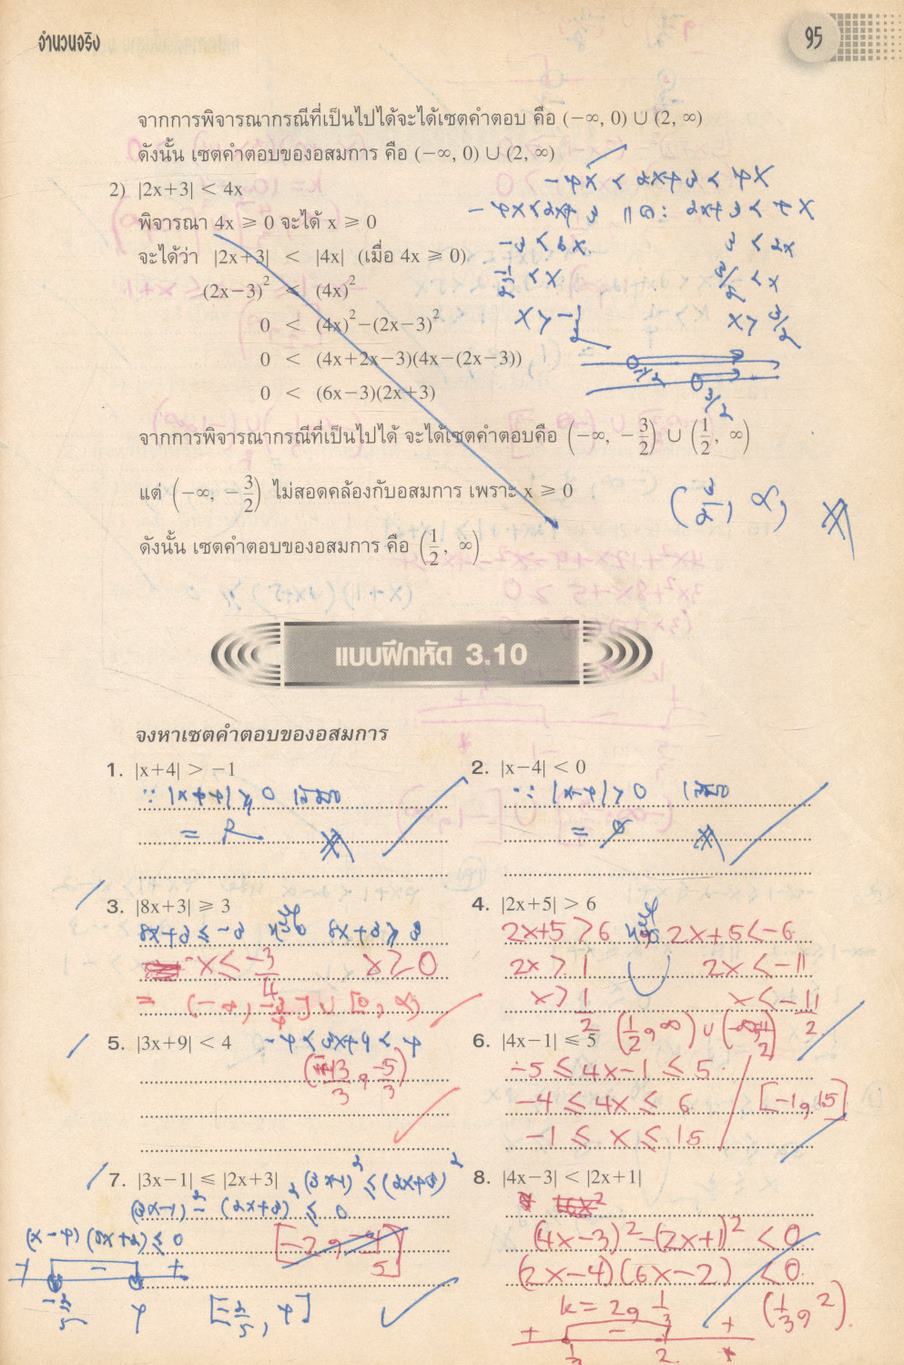 จำนวนจริง
95
จากการพิจารณากรณีที่เป็นไปได้จะได้เซตคำตอบ คือ (−∞, 0) ∪ (2, ∞)
ดังนั้น เซตคำตอบของอสมการ คือ (−∞, 0) ∪ (2, ∞)
2) |2x+3| < 4x
-4x < 2x+3 < 4x
พิจารณา 4x ⩾ 0 จะได้ x ⩾ 0
-4x<2x+3 และ 2x+3 < 4x
จะได้ว่า |2x+3| < |4x| (เมื่อ 4x ⩾ 0)
-3 < 6x 3 < 2x
(2x−3)² < (4x)²
-1/2 < x 3/2 < x
0 < (4x)²−(2x−3)²
x > -1/2 x > 3/2
0 < (4x+2x−3)(4x−(2x−3))
-1/2
0 < (6x−3)(2x+3)
3/2
จากการพิจารณากรณีที่เป็นไปได้ จะได้เซตคำตอบคือ (−∞, −3/2) ∪ (1/2, ∞)
แต่ (−∞, −3/2) ไม่สอดคล้องกับอสมการ เพราะ x ⩾ 0
(3/2, ∞)
ดังนั้น เซตคำตอบของอสมการ คือ (1/2, ∞)
แบบฝึกหัด 3.10
จงหาเซตคำตอบของอสมการ
1. |x+4| > −1
∵ |x+4| ⩾ 0 เสมอ
= R
2. |x−4| < 0
∵ |x-4| ⩾ 0 เสมอ
= ø
3. |8x+3| ⩾ 3
8x+3 ⩽ -3 หรือ 8x+3 ⩾ 3
x ⩽ -3/4 x ⩾ 0
= (-∞, -3/4] ∪ [0, ∞)
4. |2x+5| > 6
2x+5 > 6 หรือ 2x+5 < -6
2x > 1 ∪ 2x < -11
x > 1/2 x < -11/2
5. |3x+9| < 4 -4 < 3x+9 < 4
(-13/3, -5/3)
6. |4x−1| ⩽ 5
-5 ⩽ 4x-1 ⩽ 5
-4 ⩽ 4x ⩽ 6
-1 ⩽ x ⩽ 1.5
[-1, 1.5]
7. |3x−1| ⩽ |2x+3| (3x-1)² ⩽ (2x+3)²
(3x-1)² - (2x+3)² ⩽ 0
(x-4)(5x+2) ⩽ 0
+ - +
-2/5 4 [-2/5, 4]
8. |4x−3| < |2x+1|
(4x-3)²-(2x+1)² < 0
(2x-4)(6x-2) < 0
k = 2, 1/3 (1/3, 2)
+ - +
1/3 2